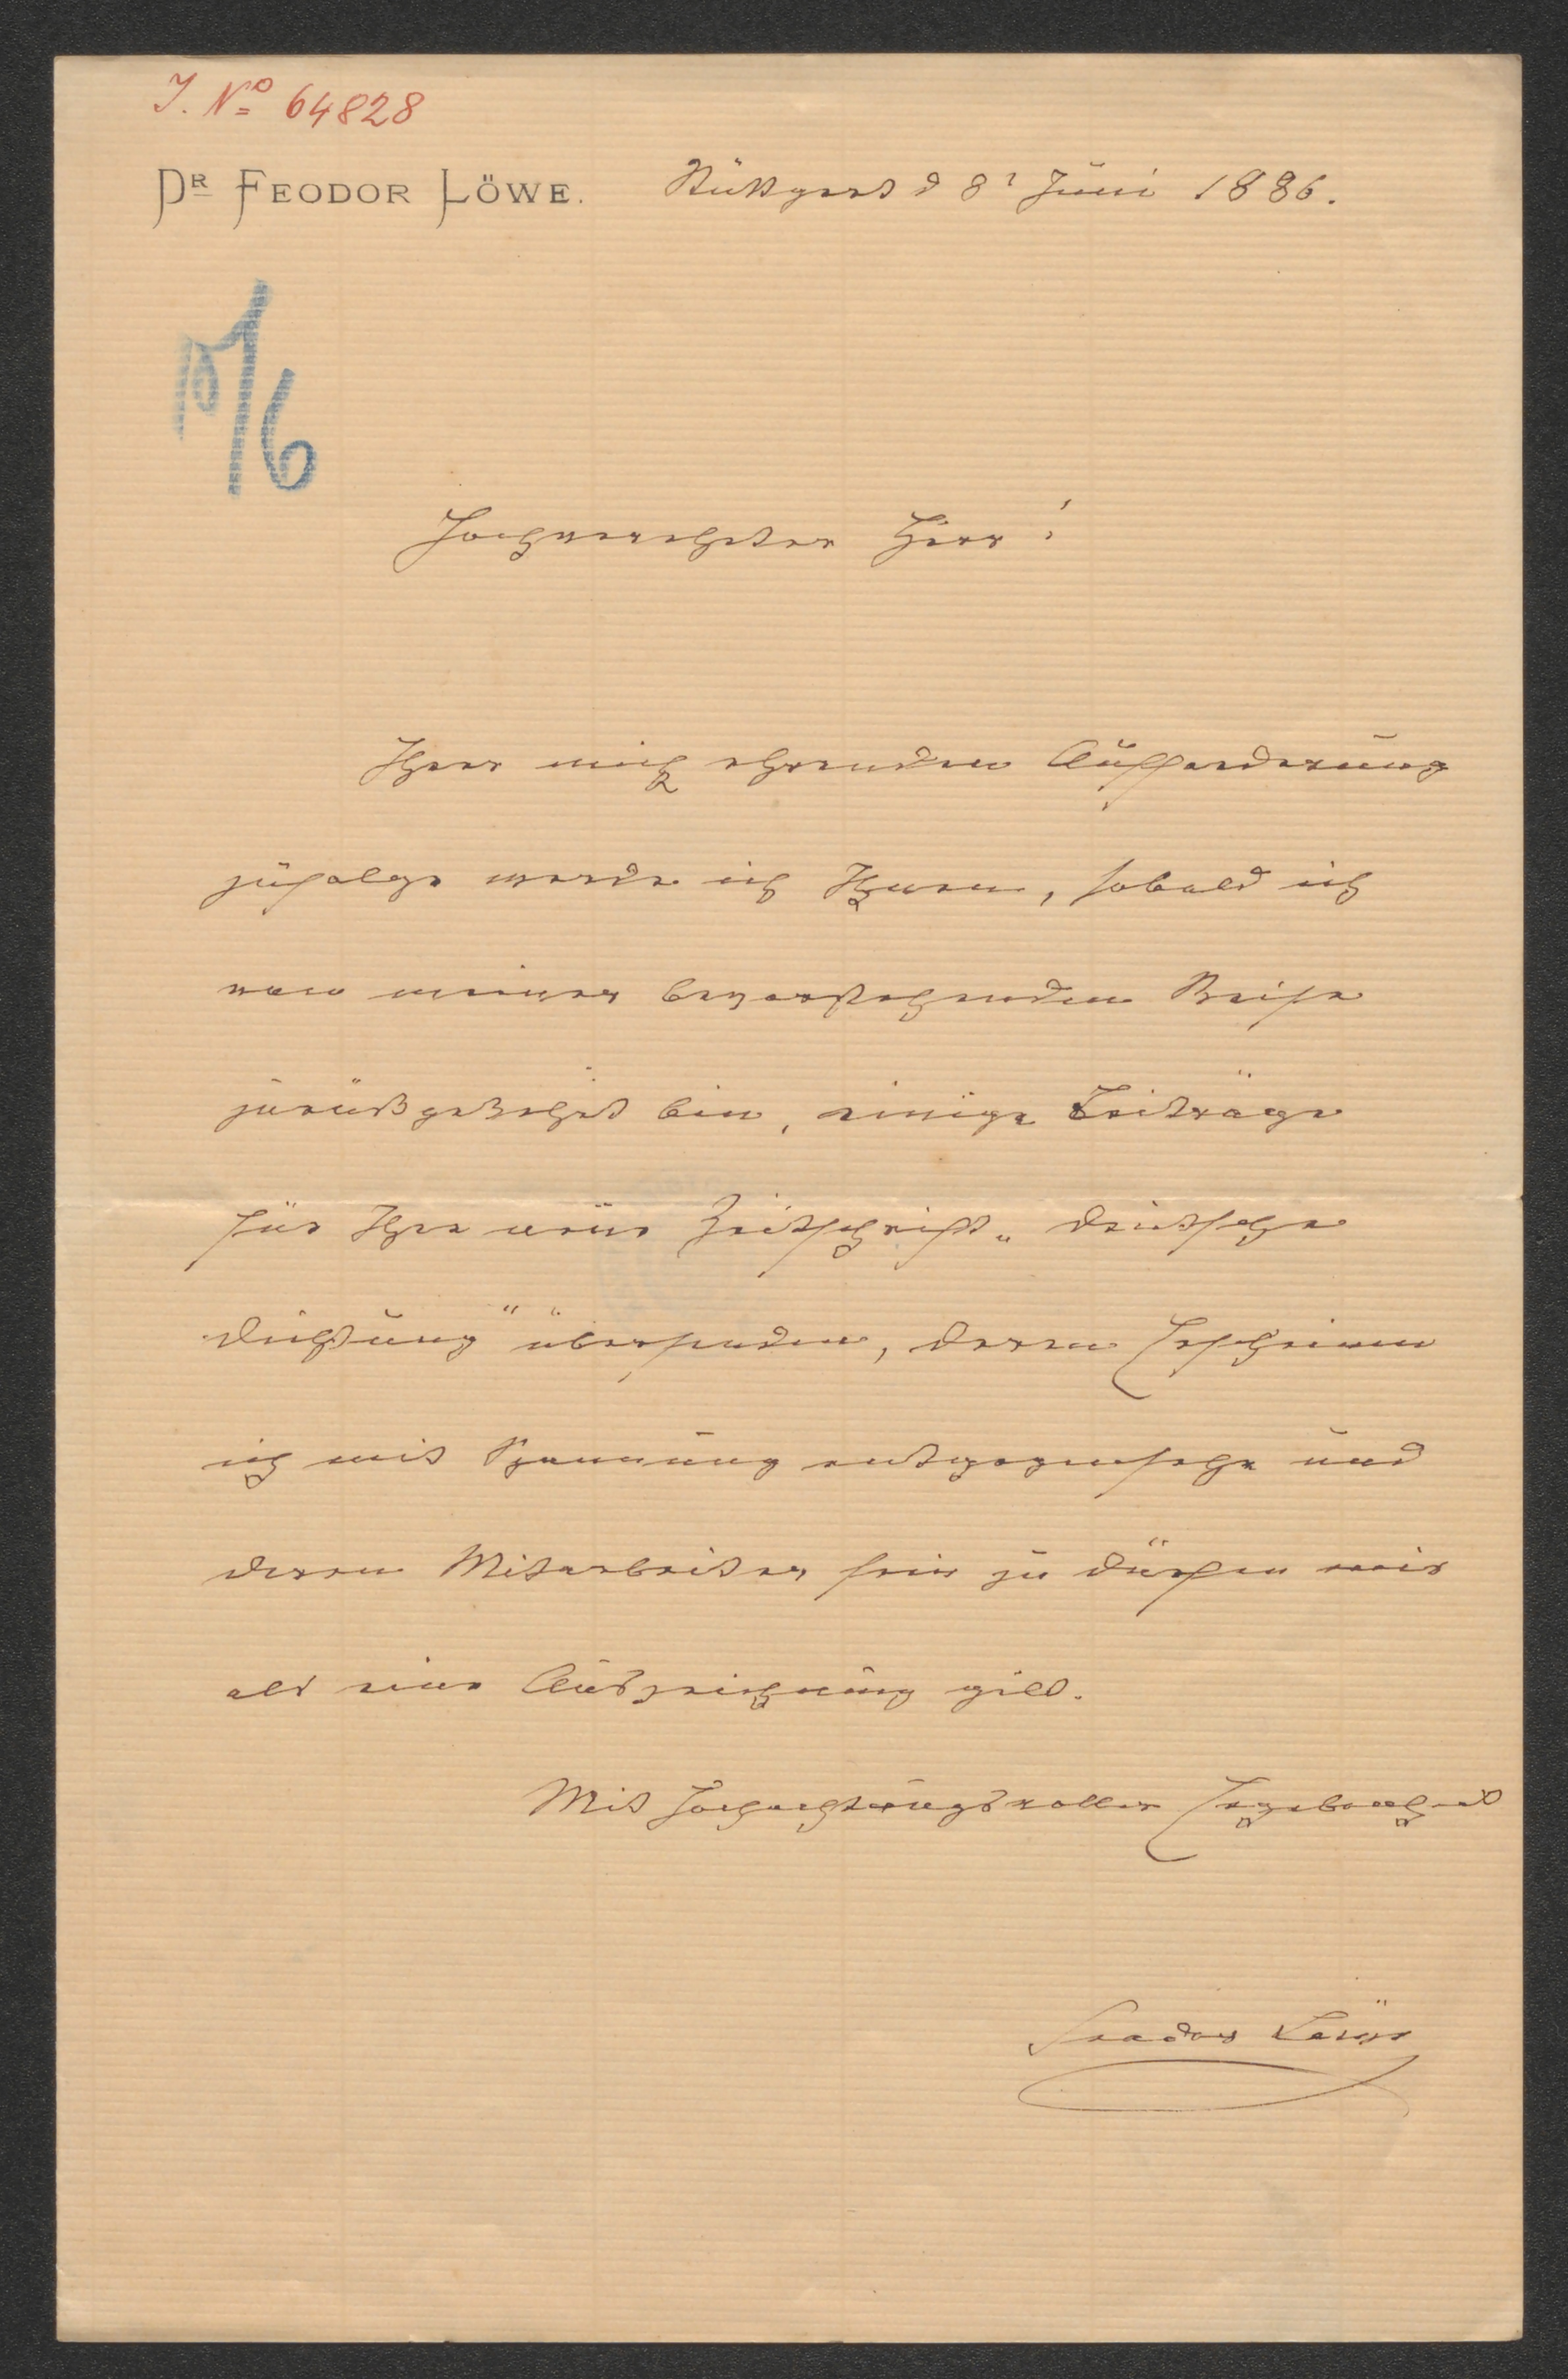 J. No 64828
Dr Feodor Löwe. Stuttgart d 8t Juni 1886.
10/6
Hochverehrter Herr!
Ihrer mich ehrenden Aufforderung
zufolge werde ich Ihnen, sobald ich
von meiner bevorstehenden Reise
zurückgekehrt bin, einige Beiträge
für Ihre neue Zeitschrift „Deutsche
Dichtung“ übersenden, deren Erscheinen
ich mit Spannung entgegensehe und
deren Mitarbeiter sein zu dürfen mir
als eine Auszeichnung gilt.
Mit hochachtungsvoller Ergebenheit
Feodor Löwe